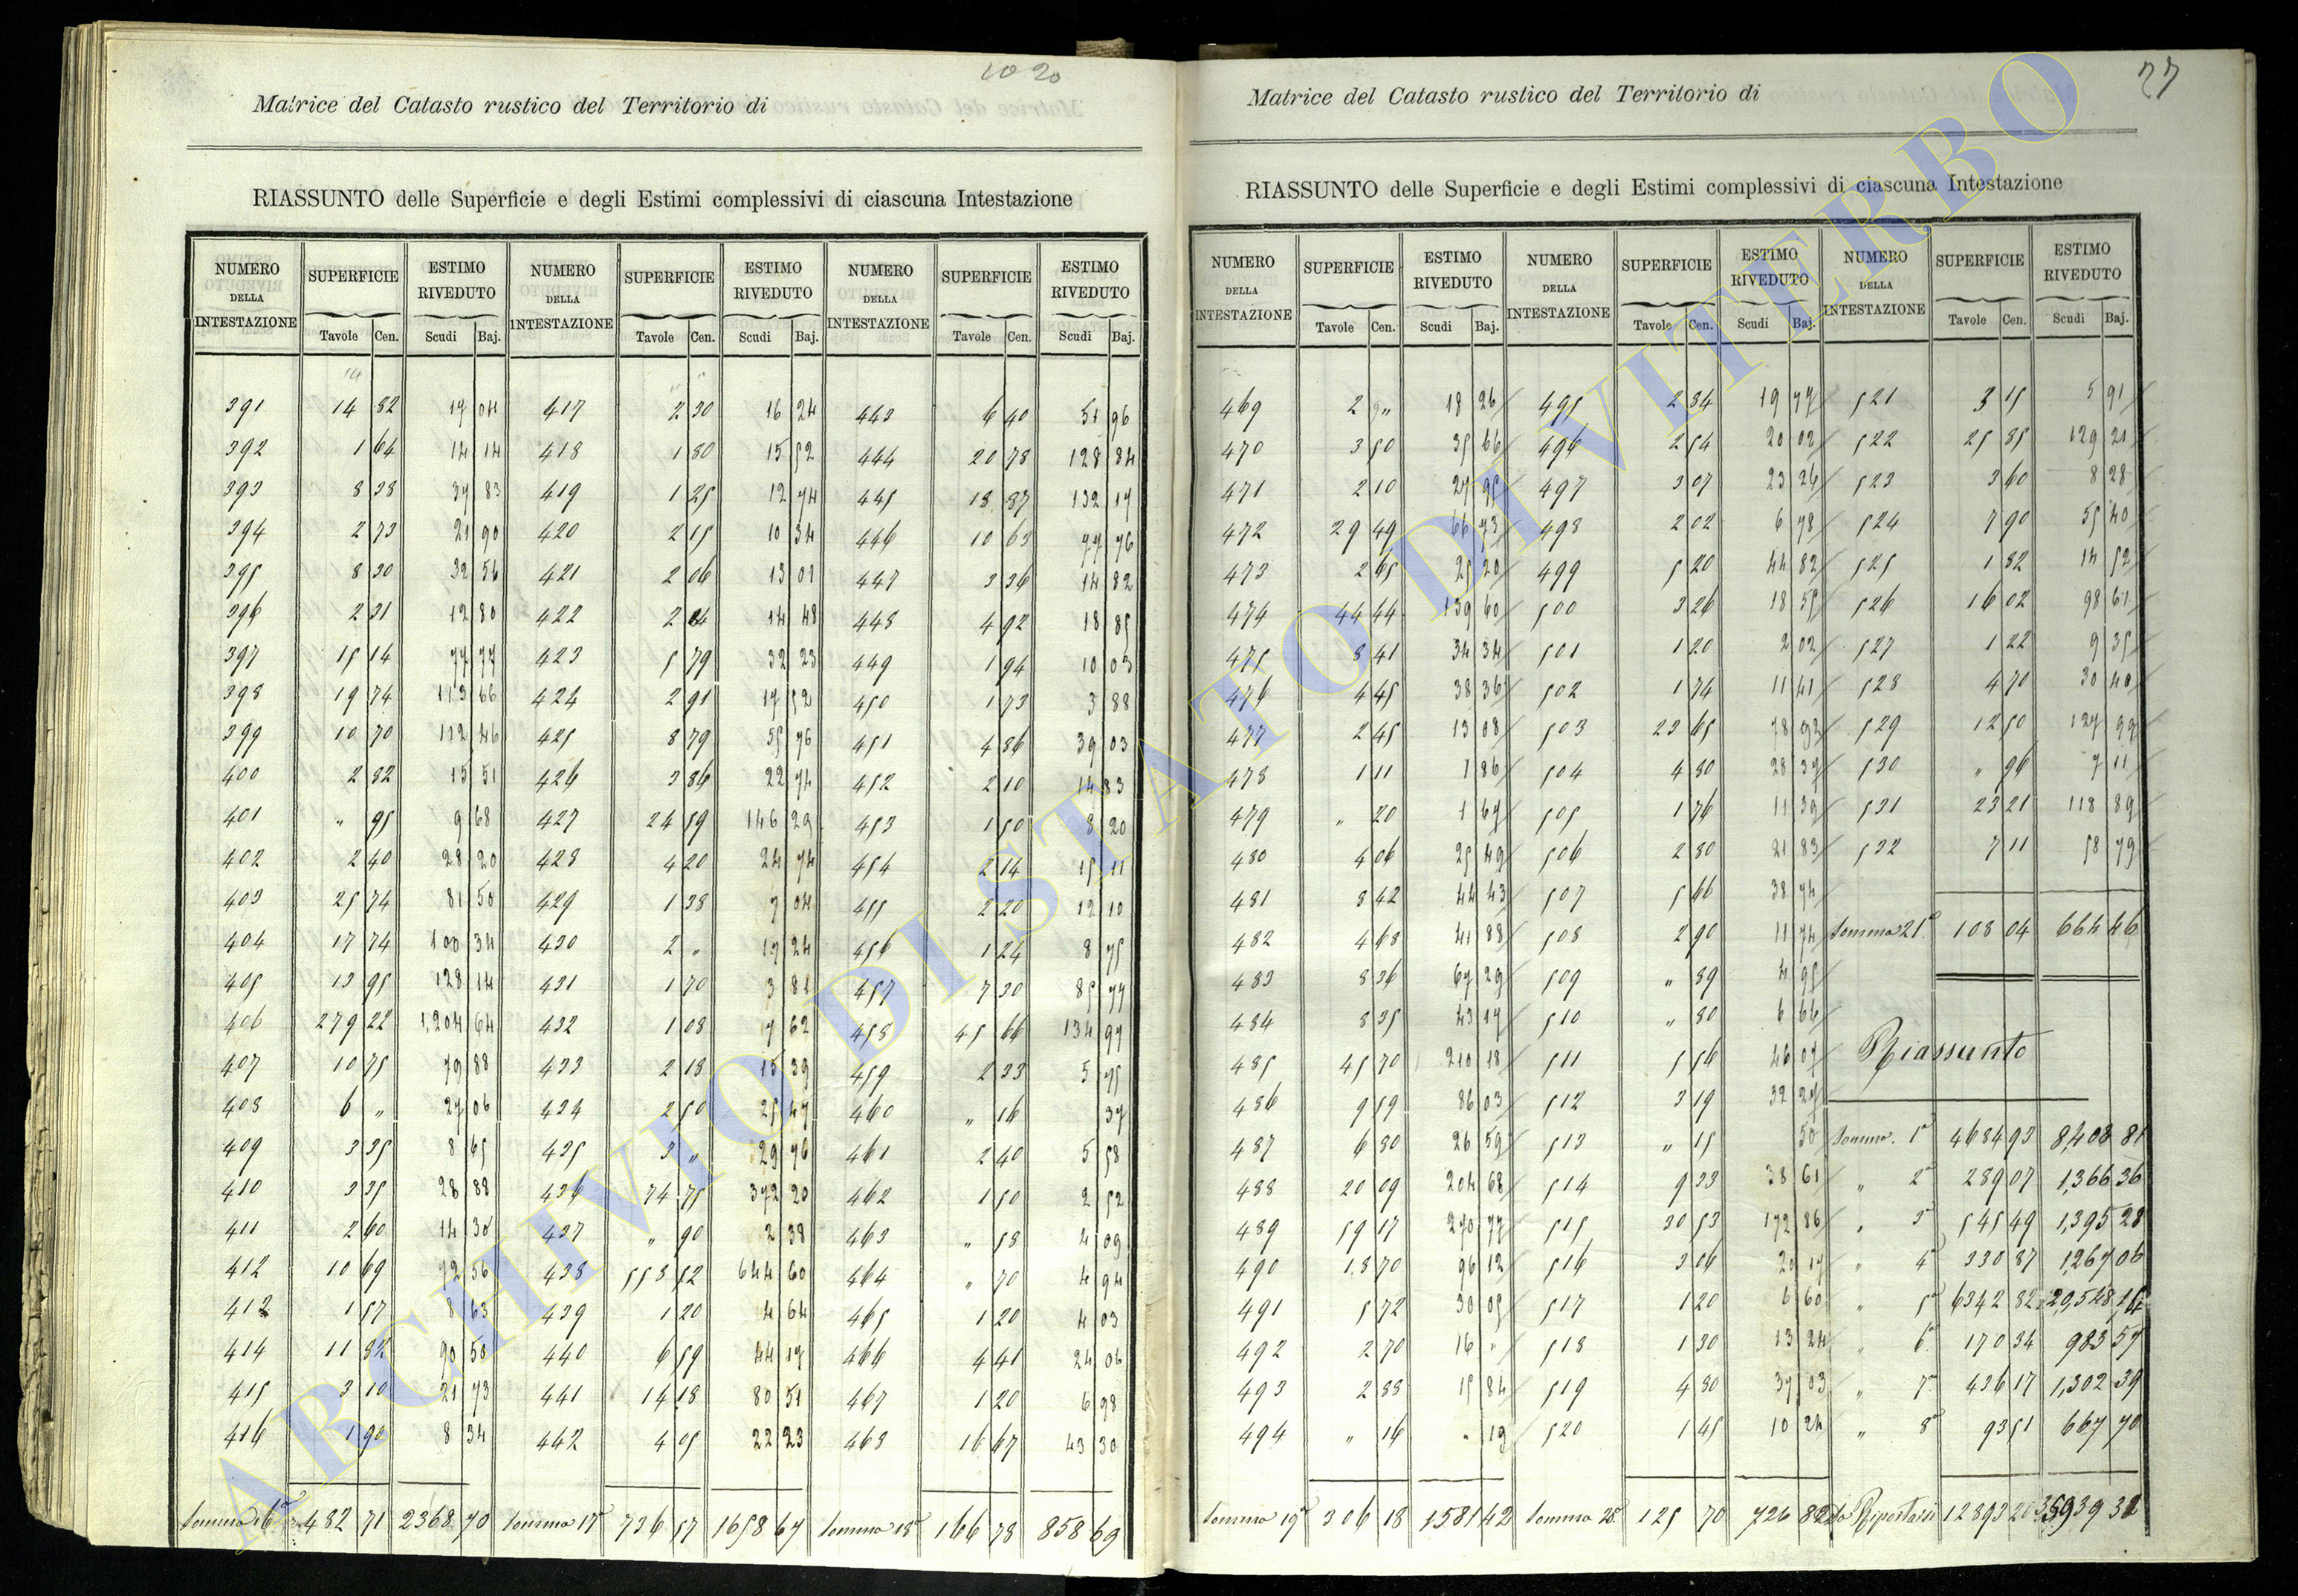 10 20
Matrice del Catasto rustico del Territorio di
RIASSUNTO delle Superficie e degli Estimi complessivi di ciascuna Intestazione
NUMERO DELLA INTESTAZIONE SUPERFICIE ESTIMO RIVEDUTO NUMERO DELLA INTESTAZIONE SUPERFICIE ESTIMO RIVEDUTO NUMERO DELLA INTESTAZIONE SUPERFICIE ESTIMO RIVEDUTO
Tavole Cen. Scudi Baj. Tavole Cen. Scudi Baj. Tavole Cen. Scudi Baj.
391 14 82 17 04 417 2 30 16 24 443 6 40 51 96
392 1 64 14 14 418 1 80 15 52 444 20 78 128 84
393 8 38 37 83 419 1 25 12 74 445 18 87 132 17
394 2 73 21 90 420 2 15 10 34 446 10 63 77 76
395 8 30 32 56 421 2 06 13 01 447 3 36 14 82
396 2 31 12 80 422 2 04 14 48 448 4 92 18 85
397 15 14 77 77 423 5 79 32 23 449 1 94 10 03
398 19 74 113 66 424 2 91 17 52 450 1 73 3 88
399 10 70 112 46 425 8 79 55 76 451 4 86 39 03
400 2 82 15 51 426 3 86 22 74 452 2 10 14 83
401 " 95 9 68 427 24 59 146 29 453 1 50 8 20
402 2 40 28 20 428 4 20 24 74 454 2 14 15 11
403 25 74 81 50 429 1 38 7 04 455 2 20 12 10
404 17 74 100 34 430 2 " 17 24 456 1 24 8 75
405 13 95 128 14 431 1 70 3 81 457 7 30 85 77
406 279 22 1,204 64 432 1 08 7 62 458 45 66 134 97
407 10 75 79 88 433 2 18 15 39 459 2 33 5 75
408 6 " 27 06 434 2 50 25 47 460 " 16 37
409 3 35 8 65 435 3 " 29 76 461 2 40 5 58
410 3 35 28 88 436 74 75 372 20 462 1 50 2 52
411 2 60 14 30 437 " 90 2 38 463 " 58 2 09
412 10 69 72 56 438 553 52 644 60 464 " 70 4 94
413 1 57 8 63 439 1 20 4 64 465 1 20 4 03
414 11 82 90 50 440 6 59 44 17 466 4 41 24 06
415 3 10 21 73 441 14 18 80 51 467 1 20 6 98
416 1 90 8 34 442 4 05 22 23 468 16 67 43 30
Somma 16ª 482 71 2368 70 Somma 17ª 736 57 1658 67 Somma 18ª 166 78 858 69
77
Matrice del Catasto rustico del Territorio di
RIASSUNTO delle Superficie e degli Estimi complessivi di ciascuna Intestazione
NUMERO DELLA INTESTAZIONE SUPERFICIE ESTIMO RIVEDUTO NUMERO DELLA INTESTAZIONE SUPERFICIE ESTIMO RIVEDUTO NUMERO DELLA INTESTAZIONE SUPERFICIE ESTIMO RIVEDUTO
Tavole Cen. Scudi Baj. Tavole Cen. Scudi Baj. Tavole Cen. Scudi Baj.
469 2 " 18 26 495 2 84 19 77 521 3 15 5 91
470 3 50 35 66 496 2 54 20 02 522 25 85 129 21
471 2 10 27 95 497 3 07 23 26 523 3 60 8 28
472 29 49 66 73 498 2 02 6 78 524 7 90 55 40
473 2 65 25 20 499 5 20 44 82 525 1 82 14 52
474 44 44 139 60 500 3 26 18 55 526 16 02 98 61
475 8 41 34 34 501 1 20 2 02 527 1 22 9 35
476 4 45 38 36 502 1 74 11 41 528 4 70 30 40
477 2 45 13 08 503 23 65 78 93 529 12 50 127 99
478 1 11 7 86 504 4 80 28 37 530 " 96 7 11
479 " 20 1 67 505 1 76 11 39 531 23 21 118 89
480 4 06 25 49 506 2 80 21 83 532 7 11 58 79
481 8 42 44 43 507 5 66 38 74
482 4 68 41 88 508 2 90 11 74 Somma 21ª 108 04 664 46
483 8 36 67 29 509 " 89 4 95
484 8 35 43 17 510 " 80 6 66
Riassunto
485 45 70 210 18 511 5 56 46 07
486 9 59 86 03 512 3 19 32 27
487 6 80 26 59 513 " 15 50 Somma 1ª 4684 93 8,408 81
488 20 09 204 68 514 9 33 38 61 " 2ª 289 07 1,366 36
489 59 17 270 77 515 30 53 172 86 " 3ª 545 49 1,395 28
490 18 70 96 12 516 3 06 20 17 " 4ª 330 87 1267 06
491 5 72 30 05 517 1 20 6 60 " 5ª 6342 82 29,548 14
492 2 70 16 " 518 1 30 13 24 " 6ª 170 34 983 57
493 2 88 15 84 519 4 80 37 03 " 7ª 436 17 1,302 39
494 " 16 " 19 520 1 45 10 24 " 8ª 93 51 667 70
Somma 19ª 306 18 1581 42 Somma 20ª 125 70 726 82 da Riportarsi 12893 20
ARCHIVIO DI STATO DI VITERBO